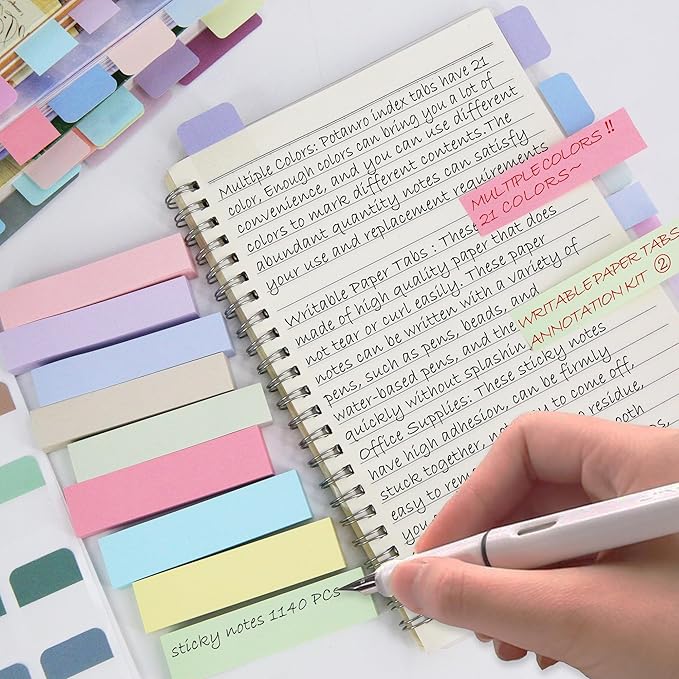 Multiple Colors: Potanro index tabs have 21
color, Enough colors can bring you a lot of
convenience, and you can use different
colors to mark different contents.The
abundant quantity notes can satisfy
your use and replacement requirements
Writable Paper Tabs : These
made of high quality paper that does
not tear or curl easily. These paper
notes can be written with a variety of
pens, such as pens, beads, and
water-based pens, and the
quickly without splashin
Office Supplies: These sticky notes
have high adhesion, can be firmly
stuck together, not easy to come off,
easy to remo residue,
you ooth
MULTIPLE COLORS !!
21 COLORS~
WRITABLE PAPER TABS
ANNOTATION KIT ②
sticky notes 1140 PCs